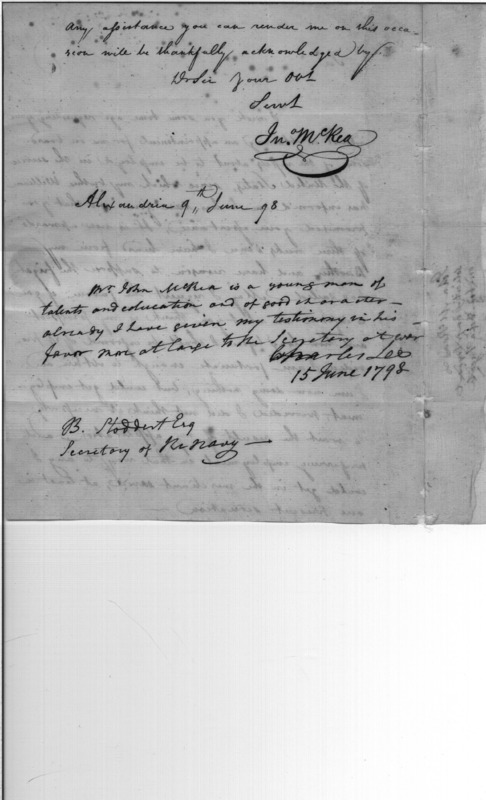 any assistance you can render me on this occa-
sion will be thankfully acknowledged by
Dr Sir your Obt
Servt
Jno. McRea
Alexandria 9th June 98
Mr John McRea is a young man of
talents and education and of good character—
already I have given my testimony in his
favor more at large to the Secretary at
Charles Lee
15 June 1798
B. Stoddert Esq
Secretary of the Navy—